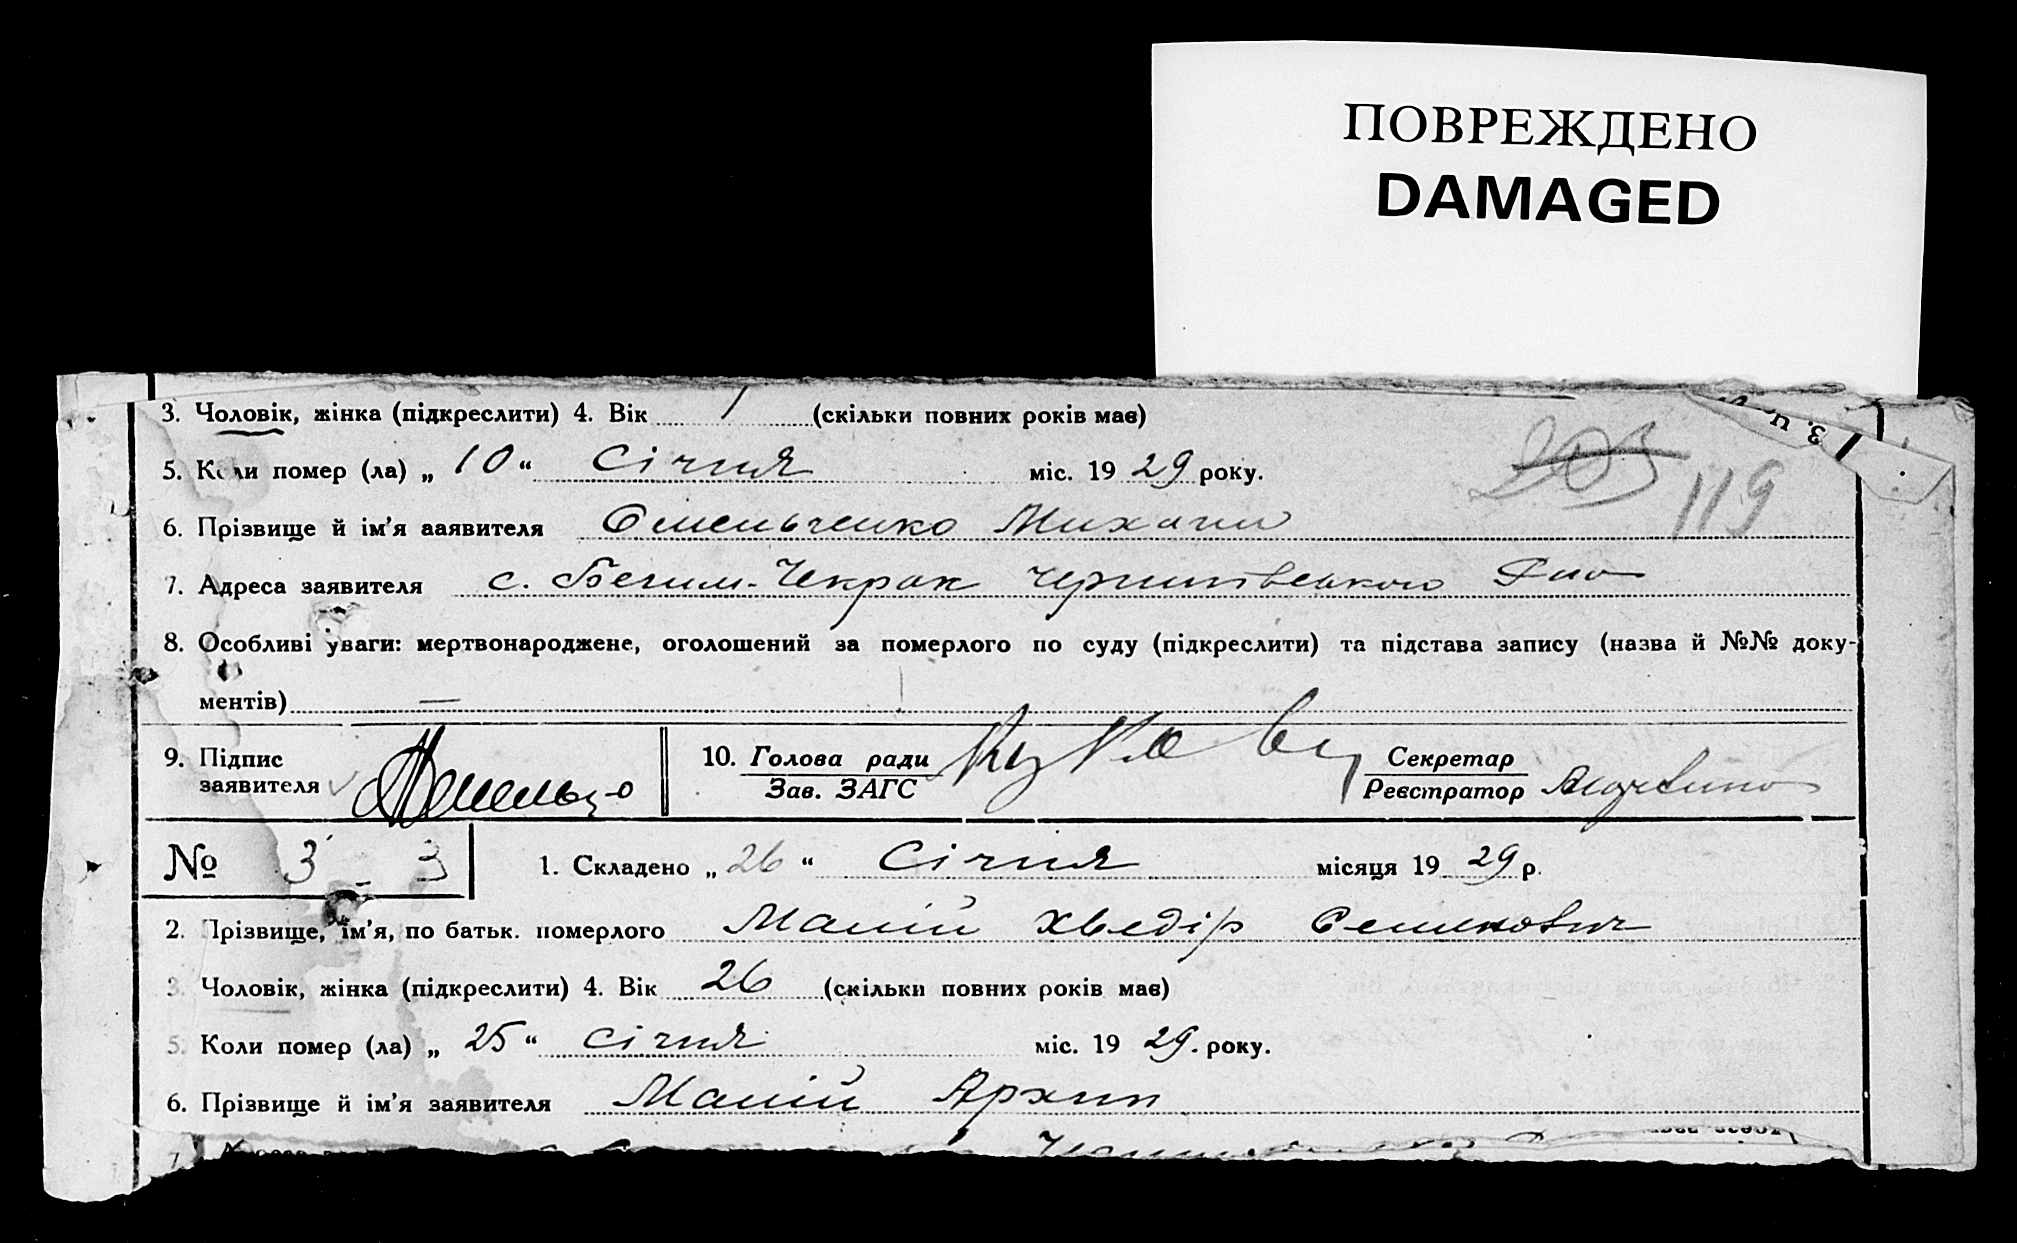 ПОВРЕЖДЕНО
DAMAGED
3. Чоловік, жінка (підкреслити) 4. Вік 1 (скільки повних років має)
5. Коли помер (ла) „ 10 “ Січня міс. 19 29 року.
203 119
6. Прізвище й ім'я заявителя Омельченко Михайло
7. Адреса заявителя с. Бегим-Чекрак Чернигівського Р-ну
8. Особливі уваги: мертвонароджене, оголошений за померлого по суду (підкреслити) та підстава запису (назва й №№ доку-
ментів) —
9. Підпис заявителя
10. Голова ради
Зав. ЗАГС
Секретар
Реєстратор
№ 3 - 3 1. Складено „ 26 “ Січня місяця 19 29 р.
2. Прізвище, ім'я, по батьк. померлого Малій Хведір Семенович
3. Чоловік, жінка (підкреслити) 4. Вік 26 (скільки повних років має)
5. Коли помер (ла) „ 25 “ Січня міс. 19 29. року.
6. Прізвище й ім'я заявителя Малій Архип
7.